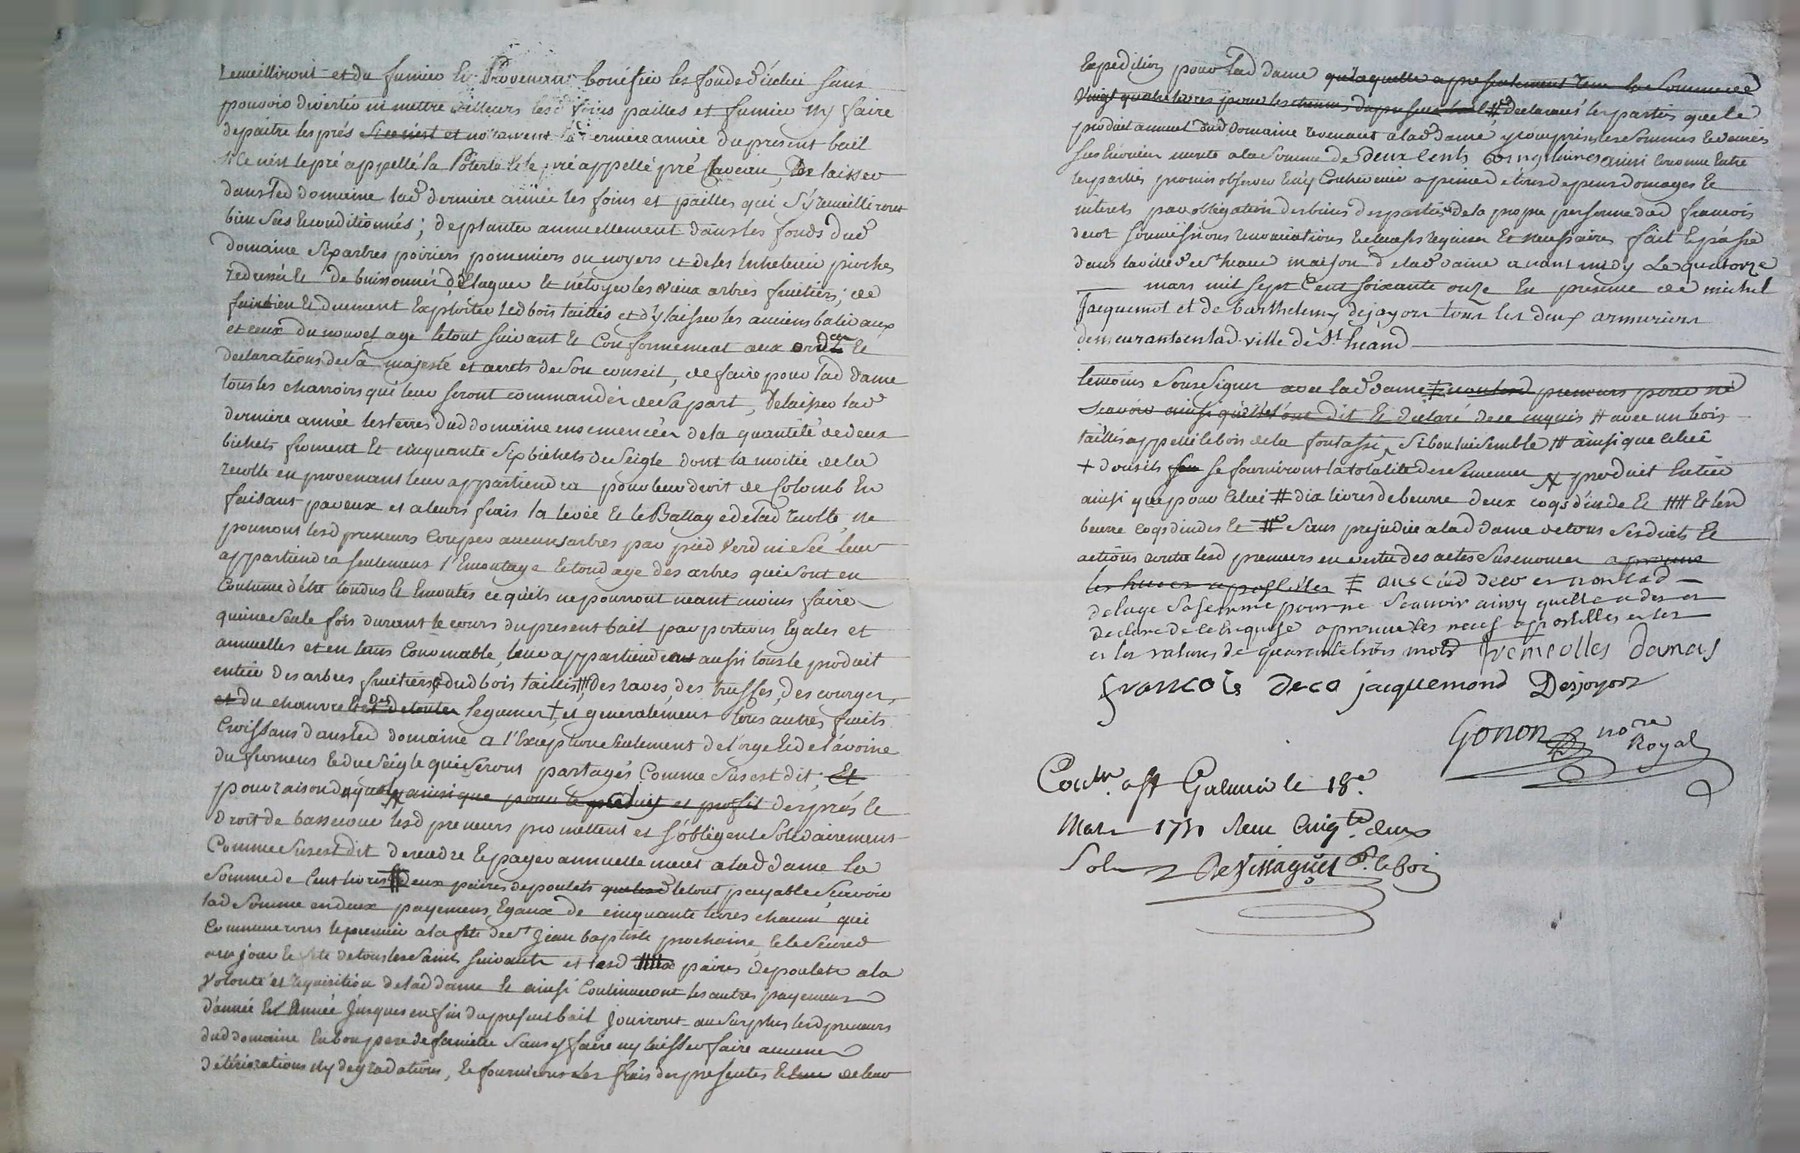 recueilliront et du fumier en provenant bonifier les fonds d'icelui sans
pouvoir divertir ni mettre ailleurs lesd foins pailles et fumier ny faire
depaitre les prés la derniere année du present bail
si ce n'est le pré appellé la et le pré appellé pré Claveau, de laisser
dans led domaine lad derniere année les foins et pailles qui s'y recueilliront
bien secs et conditionnés; de planter annuellement dans les fonds dud
domaine six arbres poiriers pommiers ou noyers et de les entretenir piochés
et de buissonner d'élaguer et nétoyer les vieux arbres fruitiers; de
bien et duement exploiter led bois taillis et d'y laisser les anciens baliveaux
et ceux du nouvel age le tout suivant et conformement aux ord et
declarations de sa majesté et arrets de son conseil, de faire pour lad dame
tous les charroirs qui leur seront commandés de sa part, de laisser lad
derniere année les terres dud domaine ensemencées de la quantité de deux
bichets froment et cinquante six bichets de seigle dont la moitié de la
recolte en provenant leur appartiendra pour leur droit de Colomb en
faisant par eux et a leurs frais la levée et le Battage de lad recolte, ne
pourront lesd preneurs couper aucuns arbres par pied verd ni sec leur
appartiendra seulement l'Emontage et tondage des arbres qui sont en
coutume d'etre tondus et emontés ce qu'ils ne pourront neant moins faire
qu'une seule fois durant le cours du present bail par portions egales et
annuelles et en tems convenable, leur appartiendra aussi tous le produit
entier des arbres fruitiers dud bois taillis # des raves, des truffes, des courges,
et du chanvre et des legumes + et generalement tous autres fruits
croissans dans led domaine a l'Exception seulement de l'orge et de l'avoine
du froment et du seigle qui seront partagés comme sus est dit; Et
pour raison de quoy ainsi que pour le produit et profit des prés le
droit de basse cour lesd preneurs promettent et s'obligent solidairement
comme sus est dit de rendre et payer annuellement a lad dame la
somme de Cent livres # deux paires de poulets le tout payable scavoir
lad somme en deux payemens egaux de cinquante livres chacun qui
commencerons le premier a la fete de St Jean baptiste prochaine, et le second
au jour et fete de tous les saints suivante et lesd paires de poulets a la
volonté et requisition de lad dame et ainsi continueront les autres payemens
d'année en année jusques en fin du present bail jouiront au surplus lesd preneurs
dud domaine en bon pere de famille sans y faire ny laisser faire aucunes
détériorations ny degradations, et fourniront les frais des presentes et de leur
Expedition pour lad dame qu'a laquelle a presentement tenu la somme de
vingt quatre livres pour les du present bail # declarant les parties que le
produit annuel dud domaine revenant a lad dame y compris les sommes et denrées
sus monte a la somme de deux Cents cinq livres ainsi convenu entre
les parties promis observer et n'y contrevenir a peine de tous depens domages et
interets par obligation des biens des parties de la propre personne dud francois
decot soumissions renonciations et clauses requises et necessaires fait et passé
dans la ville de St heand maison de lad dame avant midy le quatorze
mars mil sept Cent soixante onze En presence de michel
Jacquemot et de Barthelemy dejoyors tous les deux armuriers
demeurants en lad ville de St heand
temoins soussignés avec lad dame et non lesd preneurs pour ne
scavoir ainsi qu'ils l'ont dit et déclaré de ce enquis # avec un bois
taillis appellé le bois de la si bon lui semble # ainsi que celui
+ d'ou ils se fourniront la totalité des semences produit entier
ainsi que pour celui # dix livres de beurre deux coqs d'inde et # et lesd
beurre coqs d'indes et # sans prejudice a lad dame de tous ses droits et
actions contre lesd preneurs en vertu des actes susenoncés
avec led deco et non lad
sa femme pour ne scavoir ainsy quelle a dit et
declare de ce enquise aprouve les neuf apostilles et les
et les ratures de quarante trois mots Tremeolles Damas
francois deco jacquemond Desjoyors
Gonon nore
Royal
Conlé. a St Galmier le 18e
Mars 1771 Recu Cinqte. deux
Sols DeVissaguet